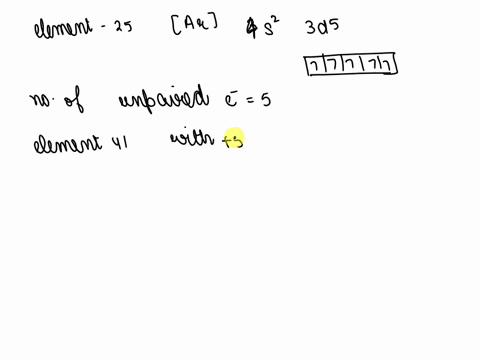 element - 25 [Ar] 4s² 3d5
1 1 1 1 1
no. of unpaired e⁻ = 5
element 41 with +3